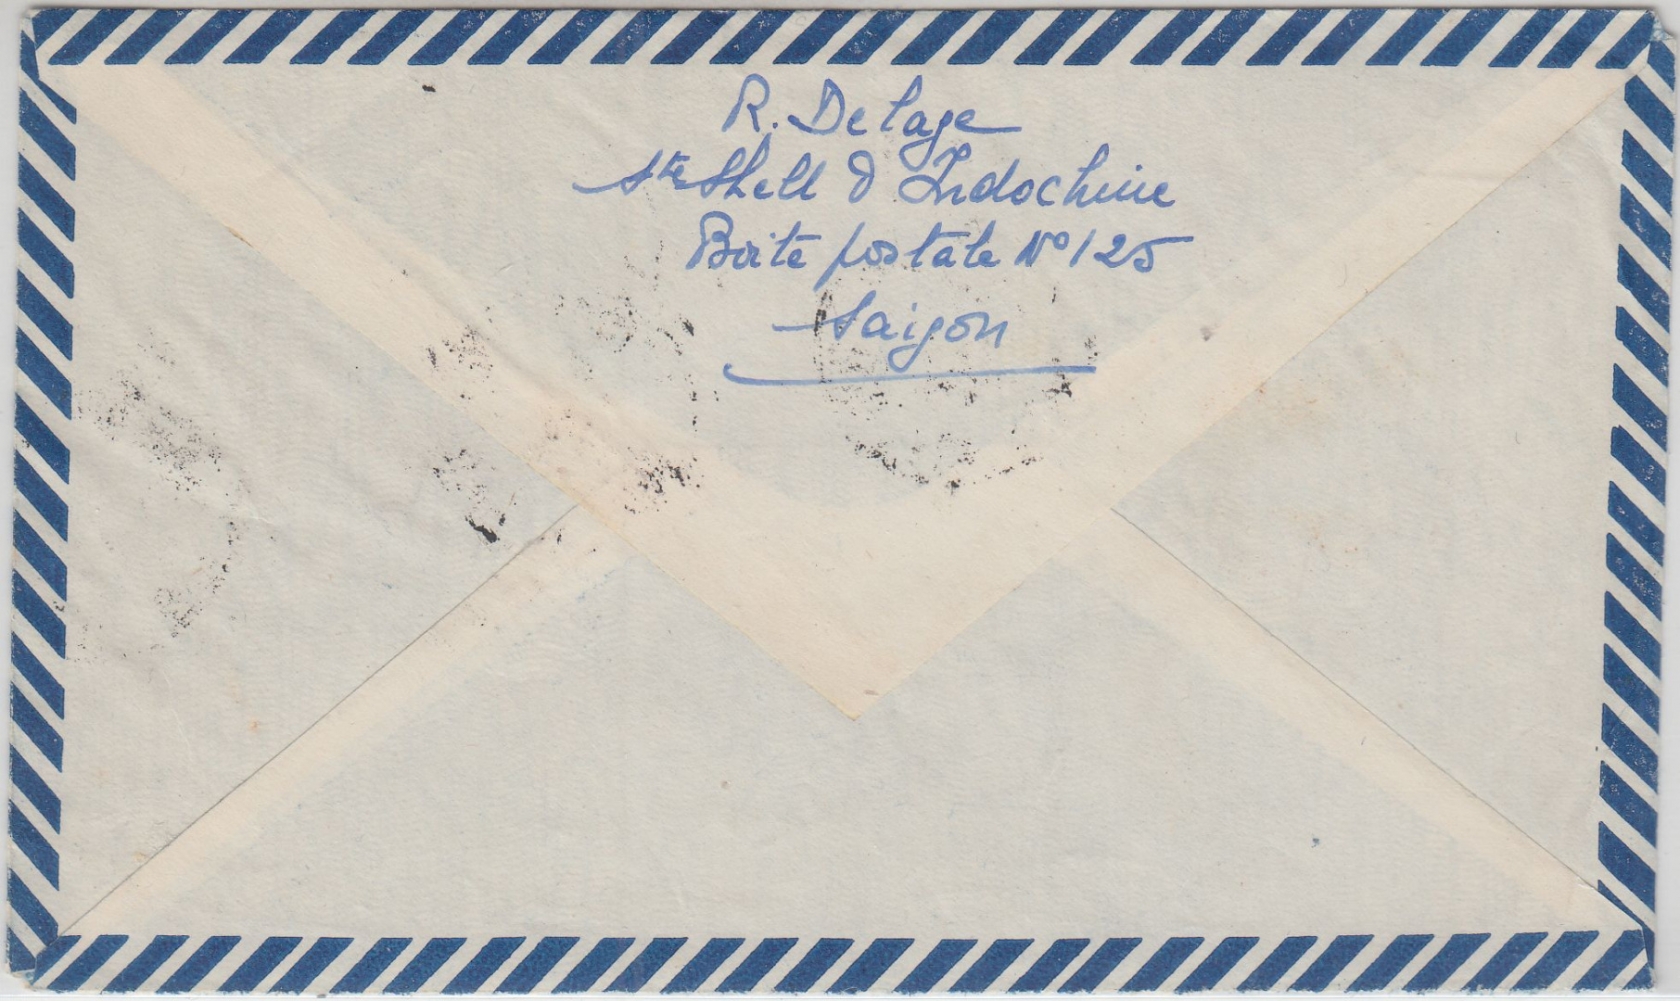 R. Delage
Sté Shell d Indochine
Boite postale N° 125
Saigon